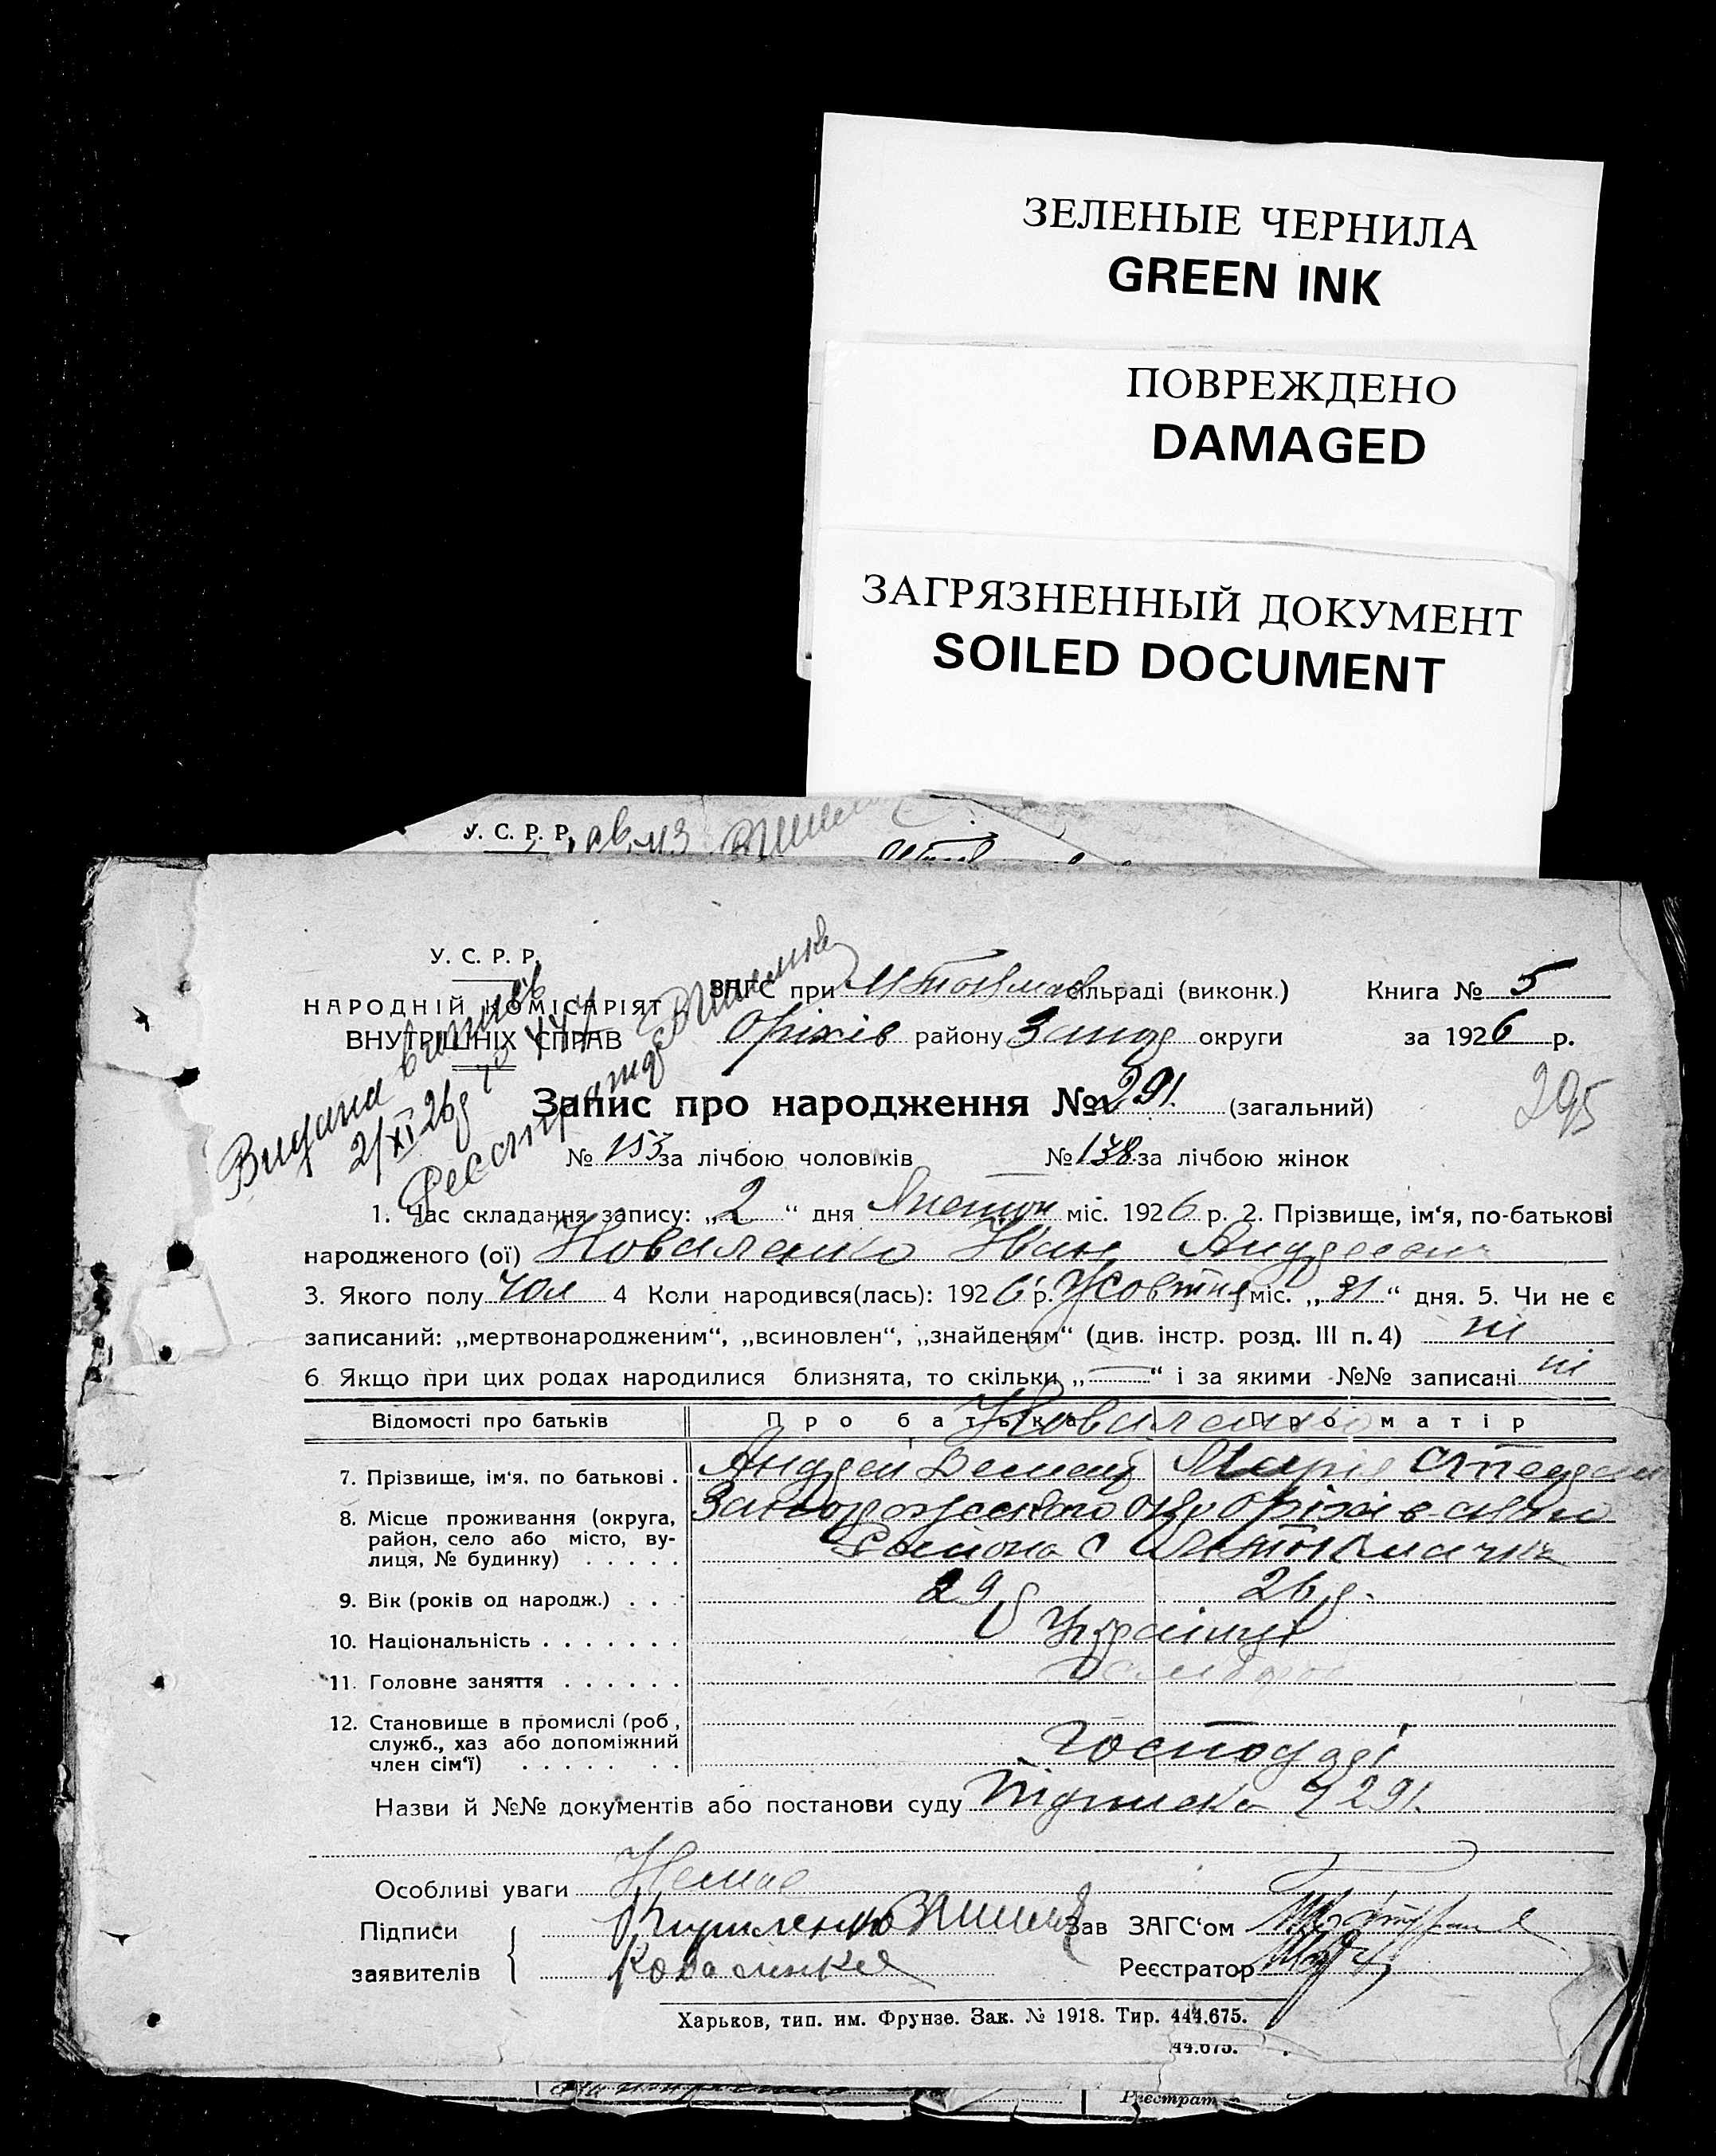 ЗЕЛЕНЫЕ ЧЕРНИЛА
GREEN INK
ПОВРЕЖДЕНО
DAMAGED
ЗАГРЯЗНЕННЫЙ ДОКУМЕНТ
SOILED DOCUMENT
У. С. Р. Р.
У. С. Р. Р.
НАРОДНІЙ КОМІСАРІЯТ
ВНУТРІШНІХ СПРАВ
Видана
2/XI 26
ЗАГС при сільраді (виконк.)
Оріхів району Запор округи
Книга № 5
за 1926 р.
295
Запис про народження № 291. (загальний)
№ 153 за лічбою чоловіків № 138 за лічбою жінок
1. Час складання запису: „2“ дня Листоп міс. 1926 р. 2. Прізвище, ім‘я, по-батькові
народженого (ої) Коваленко Іван Андреевич
3. Якого полу чол 4 Коли народився(лась): 1926 р. Жовтня міс. „31“ дня. 5. Чи не є
записаний: „мертвонародженим“, „всиновлен“, „знайденям“ (див. інстр. розд. III п. 4) ні
6 Якщо при цих родах народилися близнята, то скільки „—“ і за якими №№ записані ні
Відомості про батьків Про батька Про матір
Коваленко
7. Прізвище, ім‘я, по батькові . Андрей Демент Марія
8. Місце проживання (округа, район, село або місто, вулиця, № будинку) . . . . . Запорожського окр Оріхівського
района с
9. Вік (років од народж.) . . . 29 26
10. Національність . . . . . . . Українці
11. Головне заняття . . . . . .
12. Становище в промислі (роб., служб., хаз або допоміжний член сім‘ї) . . . . . . . Господарі
Назви й №№ документів або постанови суду Підписка № 291.
Особливі уваги Немае
Підписи
заявителів
Кириленко
Коваленко
Зав ЗАГС‘ом
Реєстратор
Харьков, тип. им. Фрунзе. Зак. № 1918. Тир. 444.675.
44.675.
Реєстрат